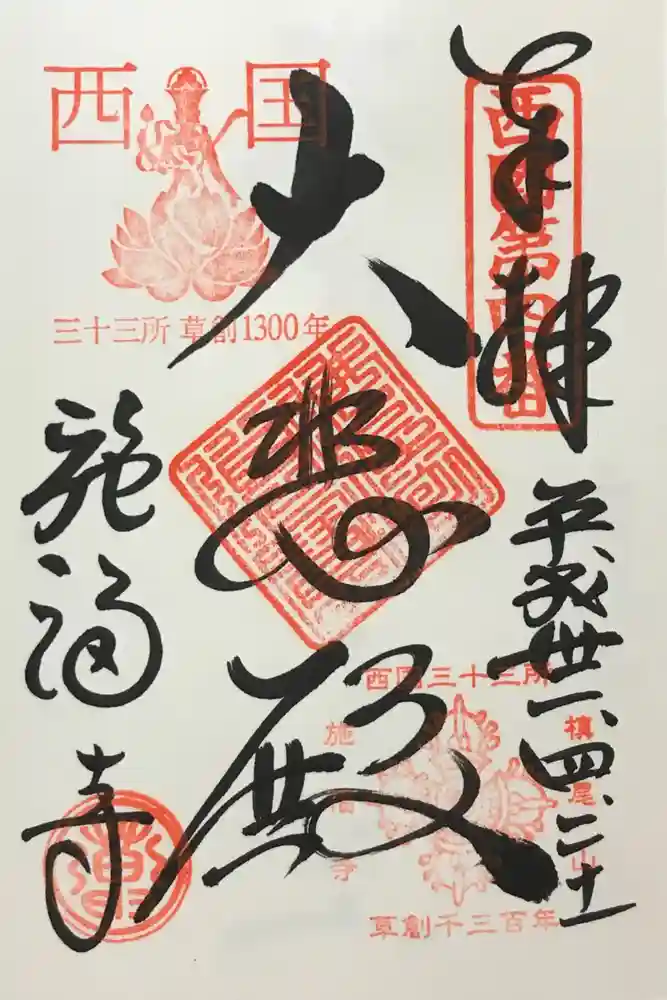 奉拝
西國第四番
平成卅一、四、二十一
大悲殿
施福寺
西国
三十三所 草創1300年
西国三十三所
槇尾山
施福寺
草創千三百年